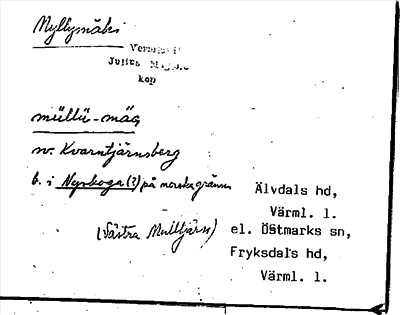 Myllymäki
Julius
kop
müllü-mäg
sv. Kvarntjärnsberg
b. i Nyskoga (?) på norska gränsen
Älvdals hd,
Värml. l.
(Västra Mulltjärn) el. Östmarks sn,
Fryksdals hd,
Värml. l.